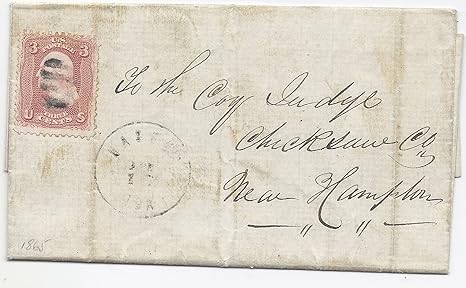 3 U.S. 3
POSTAGE
U THREE CENTS S
To the Coy Judge
Chicksaw Co
New Hampton
1865